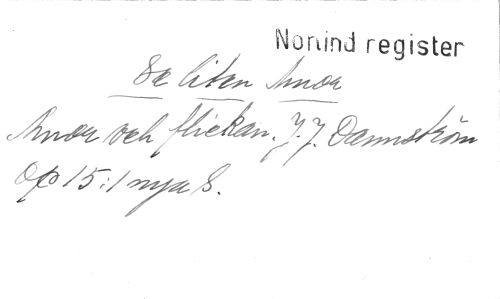 Nonind register
Se liten Amor
Amor och flickan. J. J. Dannström
Op 15:1 nya S.